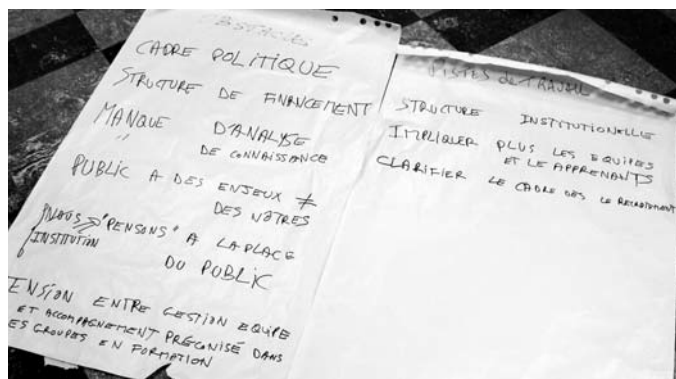 OBSTACLES
CADRE POLITIQUE
STRUCTURE DE FINANCEMENT
MANQUE D'ANALYSE
" DE CONNAISSANCE
PUBLIC A DES ENJEUX ≠
DES NÔTRES
NOUS "PENSONS" A LA PLACE
INSTITUTION
DU PUBLIC
ENSION ENTRE GESTION EQUIPE
ET ACCOMPAGNEMENT PRÉCONISÉ DANS
ES GROUPES EN FORMATION
PISTES de TRAVAIL
STRUCTURE INSTITUTIONELLE
IMPLIQUER PLUS LES EQUIPES
ET LE APPRENANTS
CLARIFIER LE CADRE DES LE RECRUTEMENT